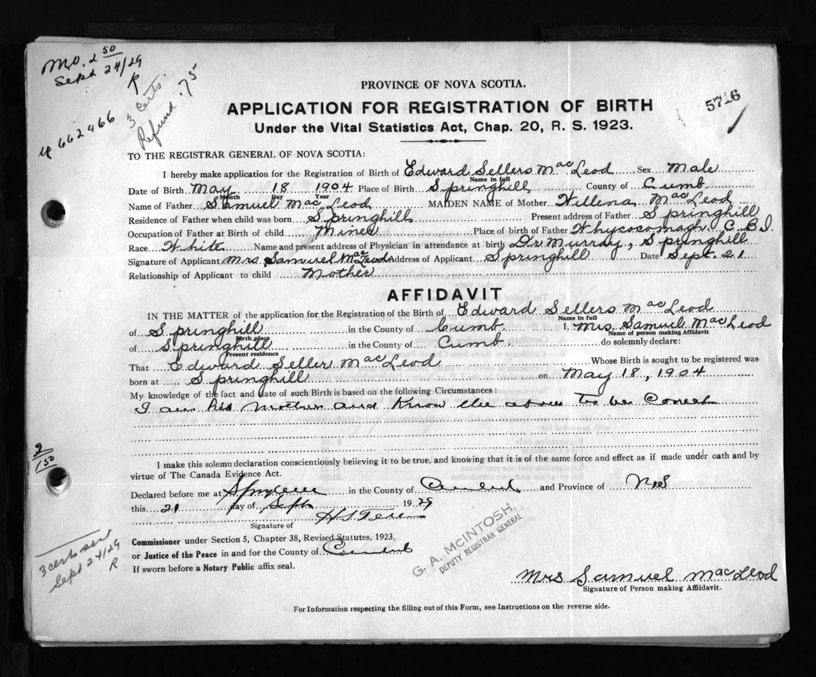 Mo. 2 50
Sept 24/29
P
3 certs.
Refund .75
662466
5716
PROVINCE OF NOVA SCOTIA.
APPLICATION FOR REGISTRATION OF BIRTH
Under the Vital Statistics Act, Chap. 20, R. S. 1923.
TO THE REGISTRAR GENERAL OF NOVA SCOTIA:
I hereby make application for the Registration of Birth of Edward Sellers MacLeod Sex Male
Name in full
Date of Birth May 18 1904 Place of Birth Springhill County of Cumb.
Month Day Year
Name of Father Samuel MacLeod MAIDEN NAME of Mother Willena MacLeod
Residence of Father when child was born Springhill Present address of Father Springhill
Occupation of Father at Birth of child Miner Place of birth of Father Whycocomagh. C.B.I.
Race White Name and present address of Physician in attendance at birth Dr. Murray, Springhill
Signature of Applicant Mrs. Samuel MacLeod Address of Applicant Springhill Date Sept. 21
Relationship of Applicant to child Mother
AFFIDAVIT
IN THE MATTER of the application for the Registration of the Birth of Edward Sellers MacLeod
Name in full
of Springhill in the County of Cumb. I, Mrs. Samuel MacLeod
Birth place Name of person making Affidavit
of Springhill in the County of Cumb. do solemnly declare:
Present residence
That Edward Seller MacLeod Whose Birth is sought to be registered was
born at Springhill on May 18, 1904
My knowledge of the fact and date of such Birth is based on the following Circumstances:
I am his mother and know the above to be Correct
2
1.50
I make this solemn declaration conscientiously believing it to be true, and knowing that it is of the same force and effect as if made under oath and by
virtue of The Canada Evidence Act.
Declared before me at in the County of and Province of N.S
this 21 day of Sept 1929
Signature of
Commissioner under Section 5, Chapter 38, Revised Statutes, 1923,
or Justice of the Peace in and for the County of
If sworn before a Notary Public affix seal.
G. A. MCINTOSH,
DEPUTY REGISTRAR GENERAL
3 certs sent
Sept 24/29
R
Mrs Samuel MacLeod
Signature of Person making Affidavit.
For Information respecting the filling out of this Form, see Instructions on the reverse side.